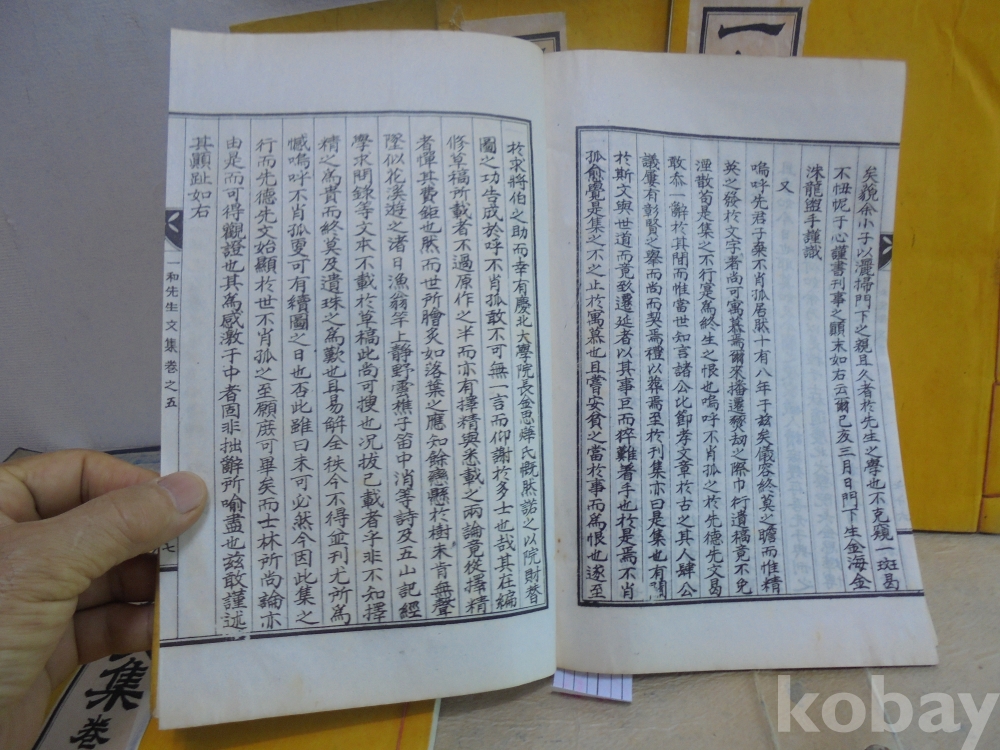 矣藐余小子以灑掃門下之親且久者於先生之學也不克窺一斑曷
不忸怩于心謹書刊事之顚末如右云爾己亥三月日門下生金海金
洙龍盥手謹識
又
嗚呼先君子棄不肖孤居然十有八年于玆矣儀容終莫之瞻而惟精
英之發於文字者尚可寓慕焉爾來播遷劫之際巾行遺稿竟不免
湮散苟是集之不行寔爲終生之恨也嗚呼不肖孤之於先德先文曷
敢忝一辭於其閒而惟當世知言諸公比節孝文章於古之其人肆公
議屢有彰賢之擧而尚而契焉禮以葬焉至於刊集亦曰是集也有關
於斯文與世道而竟致遷延者以其事巨而猝難着手也於是焉不肖
孤兪覺是集之不之止於寓慕也且嘗安貧之當於事而爲恨也遂至
於求將伯之助而幸有慶北大學院長金思燁氏慨然諾之以院財替
圖之功告成於呼不肖孤敢不可無一言而仰謝於多士也哉其在編
修草稿所載者不過原作之半而亦有擇精與悉載之兩論竟從擇精
者憚其費鉅也然而世所膾炙如落葉之應知餘戀縣於樹未肯無聲
墜似花溪遊之渚日漁翁竿上靜野雲樵子笛中消等詩及五山記經
學求問錄等文本不載於草稿此尚可搜也况拔已載者乎非不知擇
精之爲貴而終莫及遺珠之爲歎也且易解全秩今不得並刊尤所爲
憾嗚呼不肖孤更可有續圖之日也否此雖曰未可必然今因此集之
行而先德先文始顯於世不肖孤之至願庶可畢矣而士林所尚論亦
由是而可得觀證也其爲感激于中者固非拙辭所喻盡也玆敢謹述
其顚趾如右
一和先生文集 卷之五
七
集
卷
一
kobay